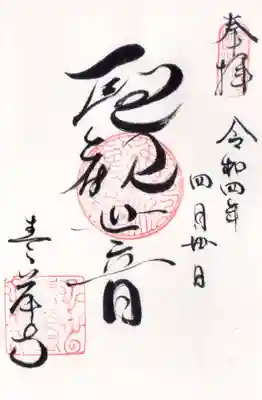 奉拝
令和四年
四月廿日
聖観世音
青岸寺